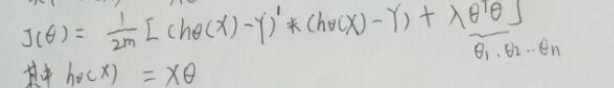 J(θ) = 1/2m [ (hθ(X)-Y)' * (hθ(X)-Y) + λθᵀθ ]
θ₁、θ₂...θn
其中 hθ(X) = Xθ